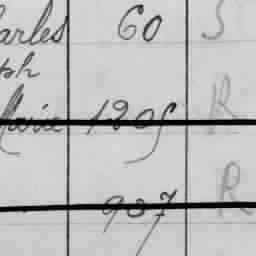 arles 60 S
ph
Marie 1205 R
937 R